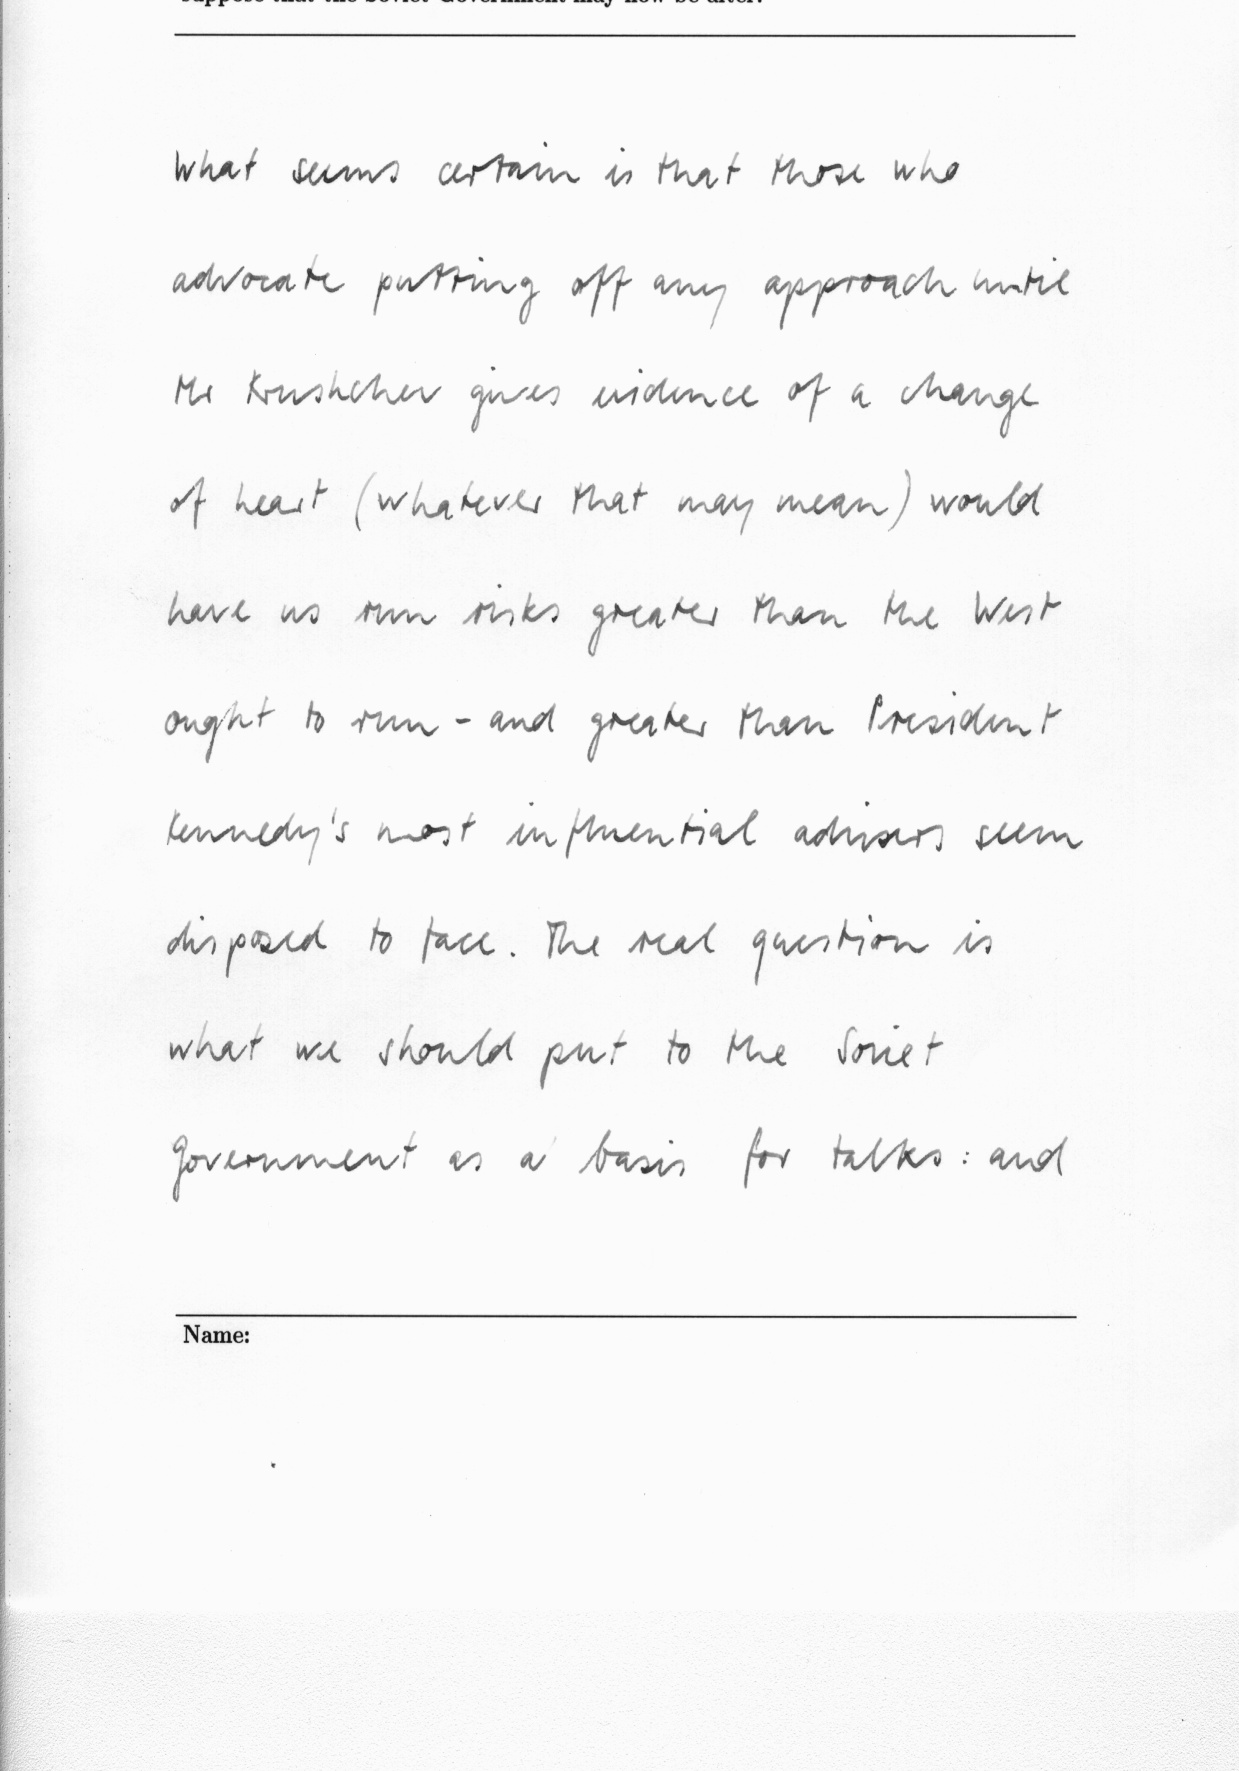 suppose that the Soviet Government may now be after.
What seems certain is that those who
advocate putting off any approach until
Mr Krushchev gives evidence of a change
of heart (whatever that may mean) would
have us run risks greater than the West
ought to run - and greater than President
Kennedy's most influential advisers seem
disposed to face. The real question is
what we should put to the Soviet
Government as a basis for talks: and
Name: